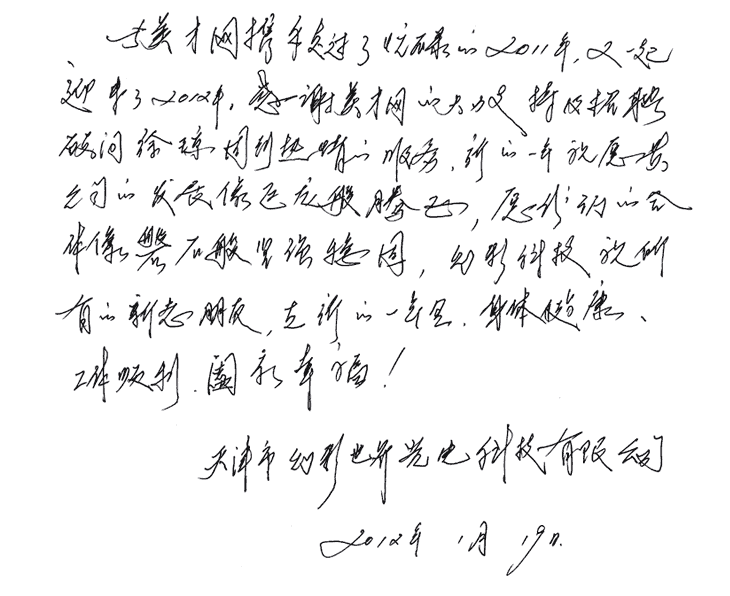 与英才网携手度过了忙碌的2011年,又一起
迎来了2012年,感谢英才网的大力支持及招聘
顾问徐琼周到热情的服务,新的一年祝愿贵
公司的发展像巨龙般腾飞,愿你们的合
作像磐石般坚强稳固,幻影科技祝所
有的新老朋友,在新的一年里,身体健康、
工作顺利、阖家幸福!
天津市幻影世界光电科技有限公司
2012年1月19日.